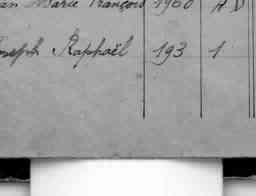 an Marie François 1960 A D
oseph Raphaël 193 1